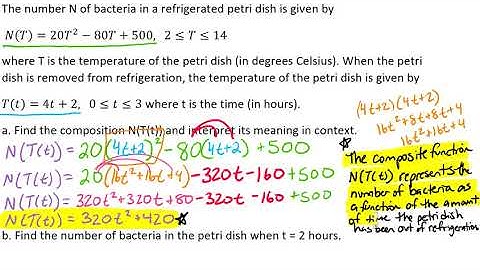 The number N of bacteria in a refrigerated petri dish is given by
N(T) = 20T² − 80T + 500, 2 ≤ T ≤ 14
where T is the temperature of the petri dish (in degrees Celsius). When the petri
dish is removed from refrigeration, the temperature of the petri dish is given by
T(t) = 4t + 2, 0 ≤ t ≤ 3 where t is the time (in hours).
(4t+2)(4t+2)
16t²+8t+8t+4
16t²+16t+4
a. Find the composition N(T(t)) and interpret its meaning in context.
N(T(t)) = 20(4t+2)² − 80(4t+2) + 500
N(T(t)) = 20(16t²+16t+4) − 320t − 160 + 500
N(T(t)) = 320t²+320t+80 − 320t − 160 + 500
N(T(t)) = 320t²+420
The composite function
N(T(t)) represents the
number of bacteria as
a function of the amount
of time the petri dish
has been out of refrigeration
b. Find the number of bacteria in the petri dish when t = 2 hours.